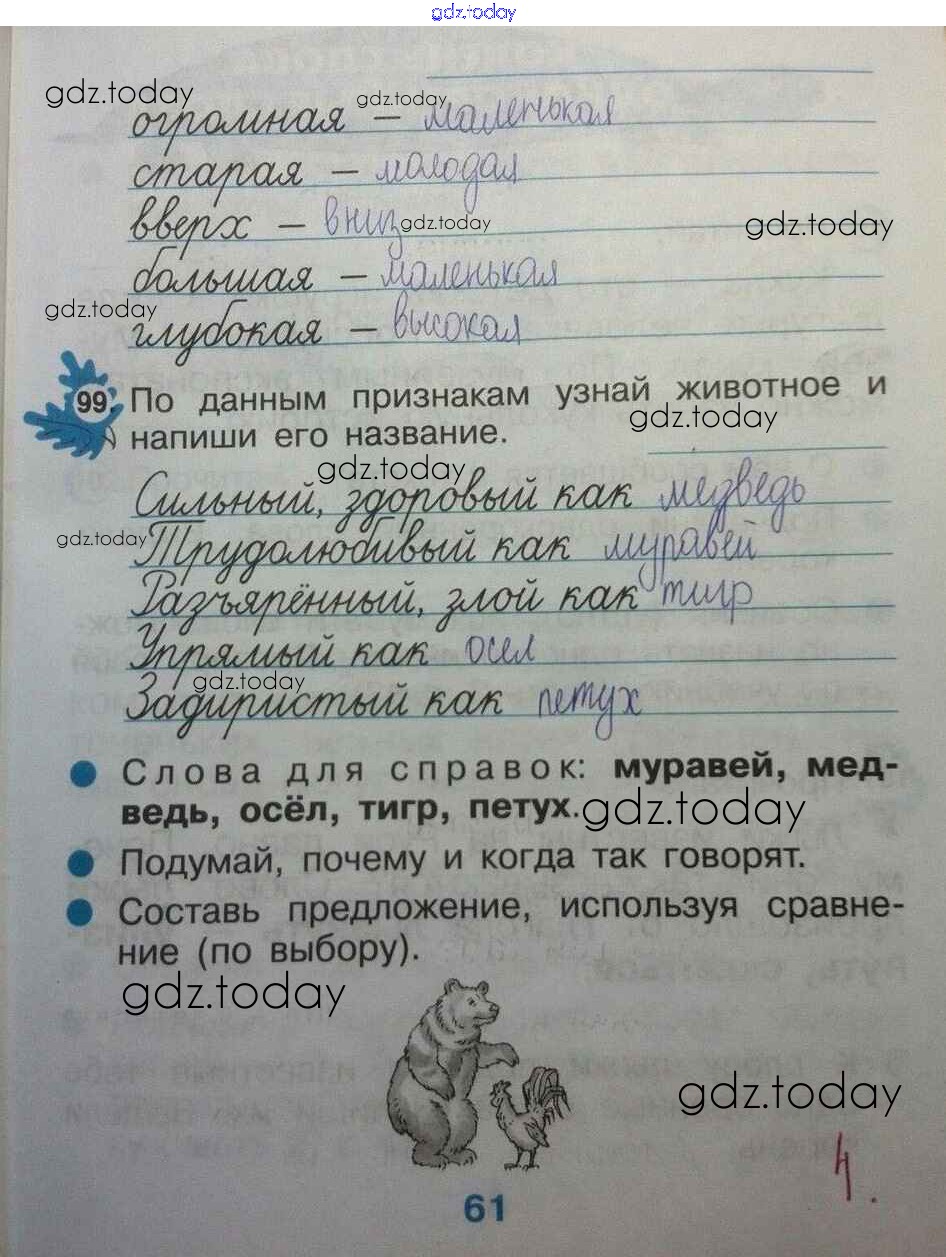 gdz.today
gdz.today
gdz.today
огромная – маленькая
старая – молодая
вверх – вниз
gdz.today
gdz.today
большая – маленькая
gdz.today
глубокая – высокая
99. По данным признакам узнай животное и
gdz.today
напиши его название.
gdz.today
Сильный, здоровый как медведь
gdz.today
Трудолюбивый как муравей
Разъярённый, злой как тигр
Упрямый как осел
gdz.today
Задиристый как петух
Слова для справок: муравей, мед-
ведь, осёл, тигр, петух.
gdz.today
Подумай, почему и когда так говорят.
Составь предложение, используя сравне-
ние (по выбору).
gdz.today
gdz.today
4.
61